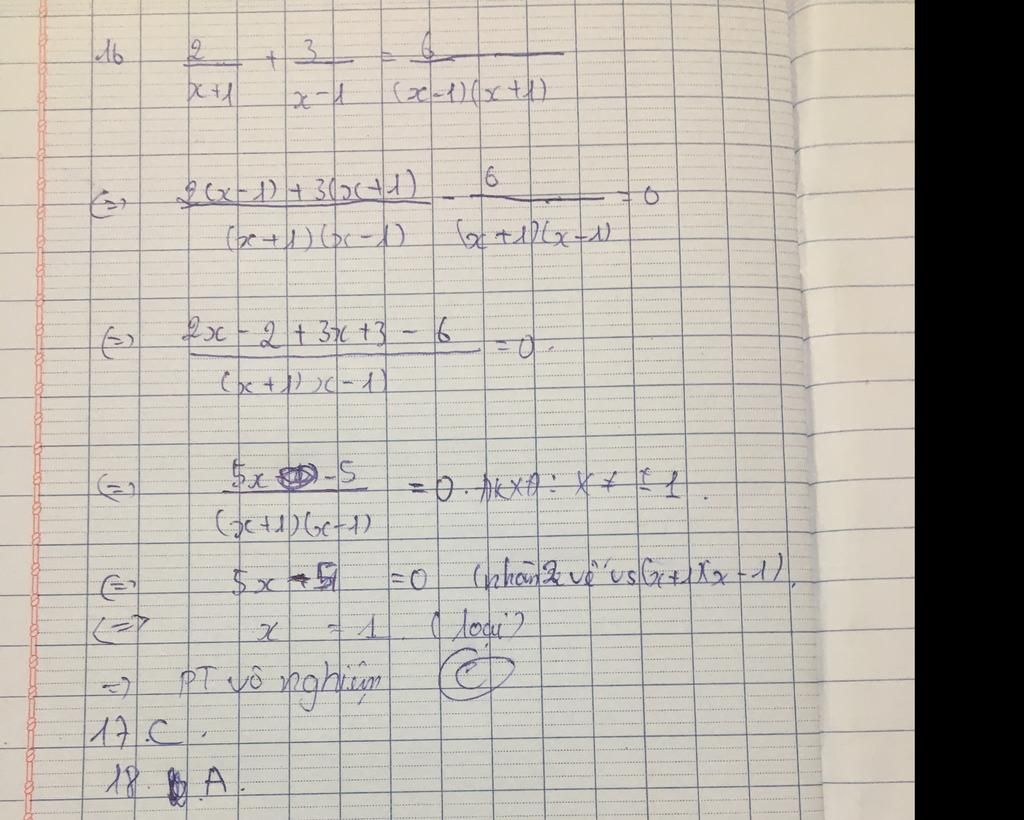 16 2/(x+1) + 3/(x-1) = 6/((x-1)(x+1))
(=) (2(x-1) + 3(x+1))/((x+1)(x-1)) - 6/((x+1)(x-1)) = 0
(=) (2x - 2 + 3x + 3 - 6)/((x+1)x-1) = 0.
(=) (5x - 5)/((x+1)(x-1)) = 0. ĐKXĐ: x ≠ ± 1.
(=) 5x - 5 = 0 (nhân 2 vế vs (x+1)(x-1).
(=> x = 1. (loại)
=) PT vô nghiệm C
17 C.
18. A.